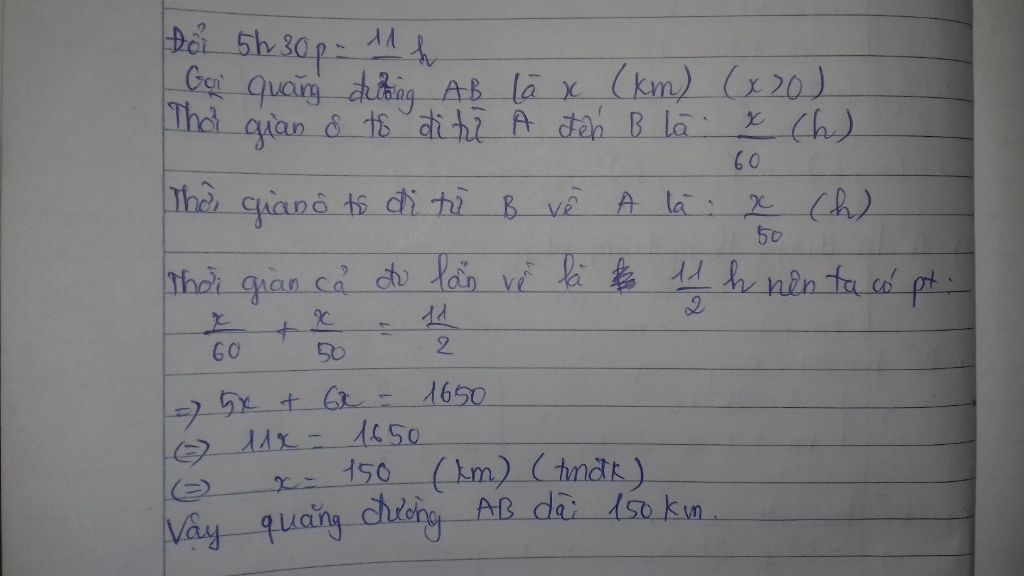 Đổi 5h30p = 11/2 h
Gọi quãng đường AB là x (km) (x>0)
Thời gian ô tô đi từ A đến B là: x/60 (h)
Thời gian ô tô đi từ B về A là: x/50 (h)
Thời gian cả đi lẫn về là 11/2 h nên ta có pt:
x/60 + x/50 = 11/2
=> 5x + 6x = 1650
(=) 11x = 1650
(=) x = 150 (km) (tmđk)
Vậy quãng đường AB dài 150 km.